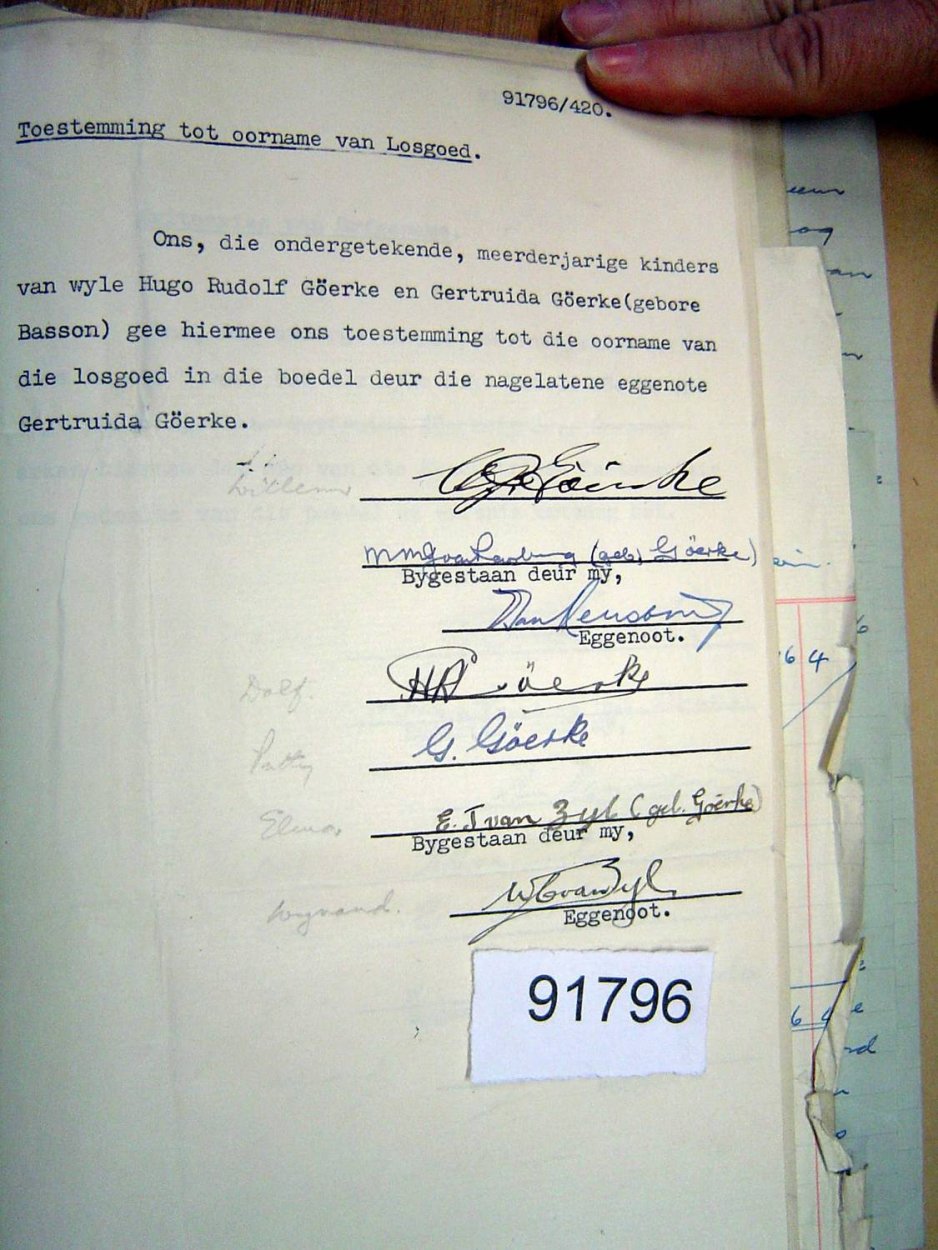 91796/420.
Toestemming tot oorname van Losgoed.
Ons, die ondergetekende, meerderjarige kinders
van wyle Hugo Rudolf Göerke en Gertruida Göerke(gebore
Basson) gee hiermee ons toestemming tot die oorname van
die losgoed in die boedel deur die nagelatene eggenote
Gertruida Göerke.
Willem
(geb. Göerke)
Bygestaan deur my,
Eggenoot.
Dolf.
HR Göerke
G. Göerke
E. J van Zyl (geb. Goërke)
Bygestaan deur my,
van Zyl
Wynand.
Eggenoot.
91796
64
64